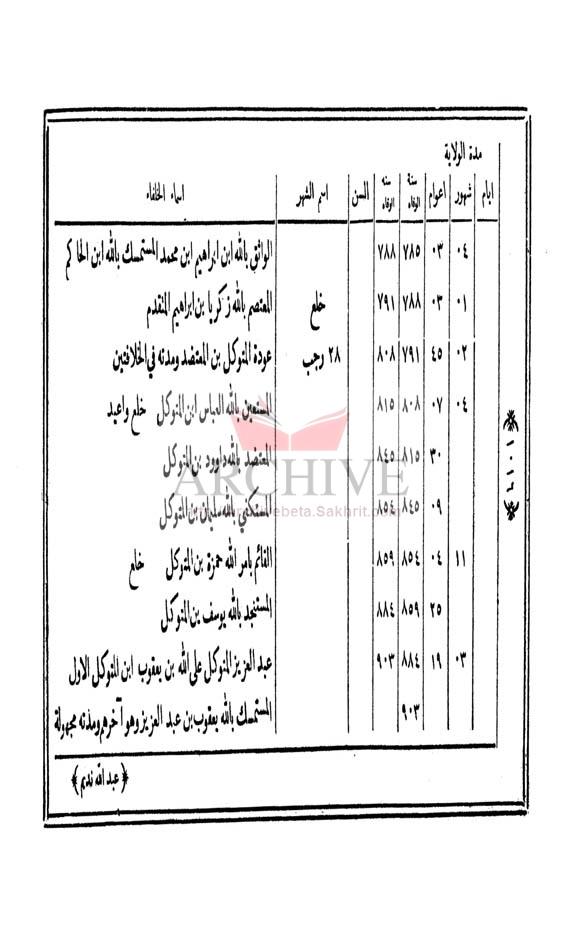 مدة الولاية
ايام | شهور | اعوام | سنة الوفاه | سنه الوفاه | السن | اسم الشهر | اسماء الخلفاء
٠٤ | ٠٣ | ٧٨٥ | ٧٨٨ | الواثق بالله ابن ابراهيم ابن محمد المستمسك بالله ابن الحاكم
٠١ | ٠٣ | ٧٨٨ | ٧٩١ | خلع | المعتصم بالله زكريا بن ابراهيم المتقدم
٠٢ | ٤٥ | ٧٩١ | ٨٠٨ | ٢٨ رجب | عودة المتوكل بن المعتضد ومدته في الخلافتين
٠٤ | ٠٧ | ٨٠٨ | ٨١٥ | المستعين بالله العباس ابن المتوكل خلع واعيد
٣٠ | ٨١٥ | ٨٤٥ | المعتضد بالله داوود بن المتوكل
٠٩ | ٨٤٥ | ٨٥٤ | المستكفي بالله سليمان بن المتوكل
١١ | ٠٤ | ٨٥٤ | ٨٥٩ | القائم بامر الله حمزة بن المتوكل خلع
٢٥ | ٨٥٩ | ٨٨٤ | المستنجد بالله يوسف بن المتوكل
٠٣ | ١٩ | ٨٨٤ | ٩٠٣ | عبد العزيز المتوكل على الله بن يعقوب ابن المتوكل الاول
٩٠٣ | المستمسك بالله يعقوب بن عبد العزيز وهو آخرهم ومدته مجهولة
﴿ عبد الله نديم ﴾
ARCHIVE
ebeta.Sakhrit.com